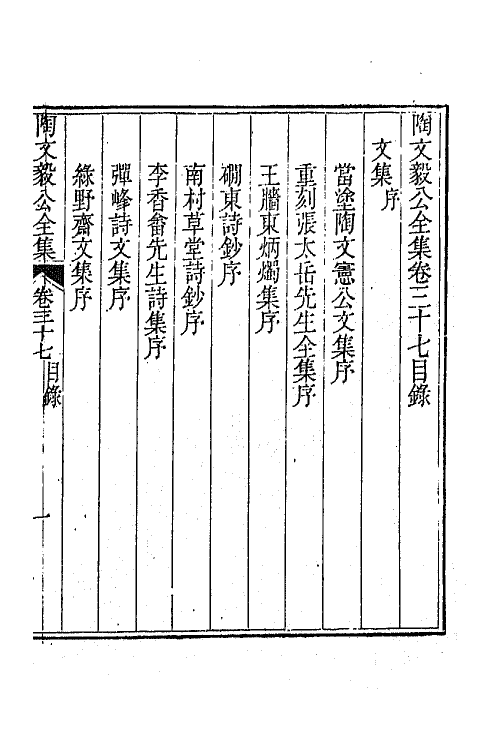 陶文毅公全集卷三十七目錄
文集序
當塗陶文憲公文集序
重刻張太岳先生全集序
王牆東炳燭集序
磵東詩鈔序
南村草堂詩鈔序
李香畬先生詩集序
彈峰詩文集序
綠野齋文集序
陶文毅公全集 卷三十七 目錄 一